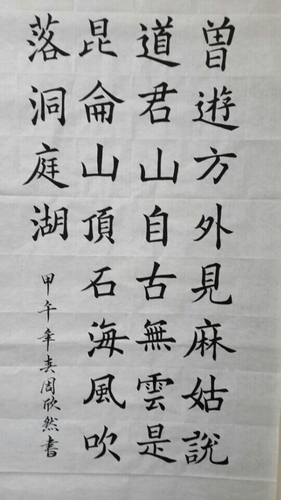 曽遊方外見麻姑說
道君山自古無雲是
昆侖山頂石海風吹
落洞庭湖
甲午年
周欣然書